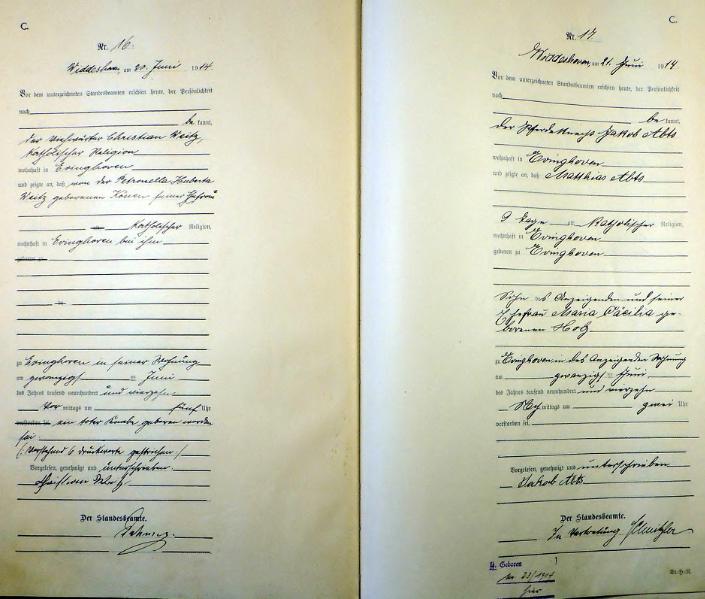 C.
Nr. 16.
Widdeshoven, am 20. Juni 1914.
Vor dem unterzeichneten Standesbeamten erschien heute, der Persönlichkeit
nach
bekannt,
der Viehwärter Christian Weitz,
katholischer Religion
wohnhaft in Evinghoven
und zeigte an, daß von der Petronella Huberta
Weitz geborenen Könen seiner Ehefrau
katholischer Religion,
wohnhaft in Evinghoven bei ihm
zu Evinghoven in seiner Wohnung
am zwanzigsten Juni
des Jahres tausend neunhundert und vierzehn
Vor mittags um fünf Uhr
ein toter Knabe geboren worden
sei
(Vorstehend 6 Druckworte gestrichen)
Vorgelesen, genehmigt und unterschrieben
Christian Weitz
Der Standesbeamte.
C.
Nr. 17
Widdeshoven, am 21. Juni 1914
Vor dem unterzeichneten Standesbeamten erschien heute, der Persönlichkeit
nach
bekannt,
der Pferdeknecht Jakob Abts
wohnhaft in Evinghoven
und zeigte an, daß Matthias Abts
9 Tage katholischer Religion,
wohnhaft in Evinghoven
geboren zu Evinghoven
Sohn des Anzeigenden und seiner
Ehefrau Maria Cäcilia ge-
borenen
zu Evinghoven in des Anzeigenden Wohnung
am zwanzigsten Juni
des Jahres tausend neunhundert und vierzehn
Nach mittags um zwei Uhr
verstorben sei.
Vorgelesen, genehmigt und unterschrieben
Jakob Abts
Der Standesbeamte.
In Vertretung
Geboren
Nr. 23/1914
hier